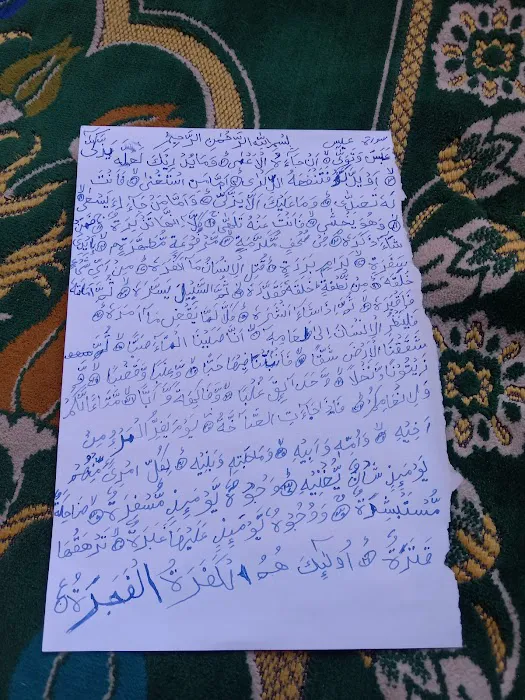 سورة عبس بسم الله الرحمن الرحيم
عَبَسَ وَتَوَلّٰى اَنْ جَآءَهُ الْاَعْمٰى وَمَا يُدْرِيْكَ لَعَلَّهٗ يَزَّكّٰى
اَوْ يَذَّكَّرُ فَتَنْفَعَهُ الذِّكْرٰى اَمَّا مَنِ اسْتَغْنٰى فَاَنْتَ
لَهٗ تَصَدّٰى وَمَا عَلَيْكَ اَلَّا يَزَّكّٰى وَاَمَّا مَنْ جَآءَكَ يَسْعٰى
وَهُوَ يَخْشٰى فَاَنْتَ عَنْهُ تَلَهّٰى كَلَّا اِنَّهَا تَذْكِرَةٌ فَمَنْ
شَآءَ ذَكَرَهٗ فِيْ صُحُفٍ مُّكَرَّمَةٍ مَّرْفُوْعَةٍ مُّطَهَّرَةٍ بِاَيْدِيْ
سَفَرَةٍ كِرَامٍ بَرَرَةٍ قُتِلَ الْاِنْسَانُ مَآ اَكْفَرَهٗ مِنْ اَيِّ شَيْءٍ
خَلَقَهٗ مِنْ نُّطْفَةٍ خَلَقَهٗ فَقَدَّرَهٗ ثُمَّ السَّبِيْلَ يَسَّرَهٗ ثُمَّ اَمَاتَهٗ
فَاَقْبَرَهٗ ثُمَّ اِذَا شَآءَ اَنْشَرَهٗ كَلَّا لَمَّا يَقْضِ مَآ اَمَرَهٗ
فَلْيَنْظُرِ الْاِنْسَانُ اِلٰى طَعَامِهٖ اَنَّا صَبَبْنَا الْمَآءَ صَبًّا ثُمَّ
شَقَقْنَا الْاَرْضَ شَقًّا فَاَنْبَتْنَا فِيْهَا حَبًّا وَّعِنَبًا وَّقَضْبًا وَّ
زَيْتُوْنًا وَّنَخْلًا وَّحَدَآئِقَ غُلْبًا وَّفَاكِهَةً وَّاَبًّا مَّتَاعًا لَّكُمْ
وَلِاَنْعَامِكُمْ فَاِذَا جَآءَتِ الصَّآخَّةُ يَوْمَ يَفِرُّ الْمَرْءُ مِنْ
اَخِيْهِ وَاُمِّهٖ وَاَبِيْهِ وَصَاحِبَتِهٖ وَبَنِيْهِ لِكُلِّ امْرِئٍ مِّنْهُمْ
يَوْمَئِذٍ شَاْنٌ يُّغْنِيْهِ وُجُوْهٌ يَّوْمَئِذٍ مُّسْفِرَةٌ ضَاحِكَةٌ
مُّسْتَبْشِرَةٌ وَوُجُوْهٌ يَّوْمَئِذٍ عَلَيْهَا غَبَرَةٌ تَرْهَقُهَا
قَتَرَةٌ اُولٰٓئِكَ هُمُ الْكَفَرَةُ الْفَجَرَةُ